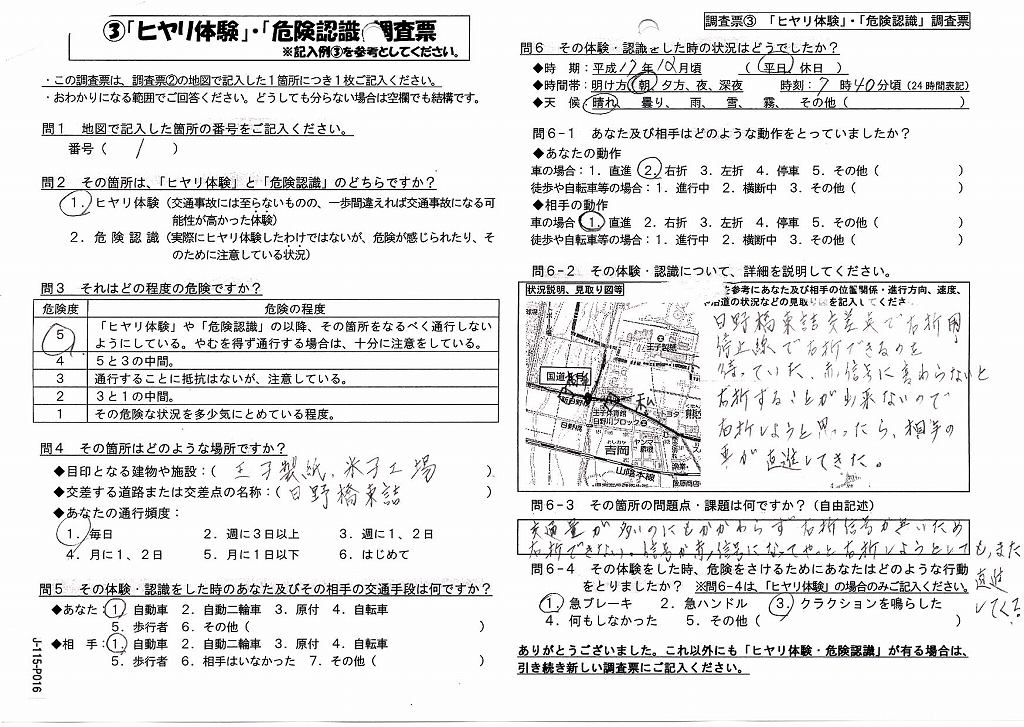 ③「ヒヤリ体験」・「危険認識」調査票
※記入例③を参考としてください。
・この調査票は、調査票②の地図で記入した1箇所につき1枚ご記入ください。
・おわかりになる範囲でご回答ください。どうしても分らない場合は空欄でも結構です。
問1 地図で記入した箇所の番号をご記入ください。
番号( 1 )
問2 その箇所は、「ヒヤリ体験」と「危険認識」のどちらですか?
1.ヒヤリ体験(交通事故には至らないものの、一歩間違えれば交通事故になる可
能性が高かった体験)
2.危険認識(実際にヒヤリ体験したわけではないが、危険が感じられたり、そ
のために注意している状況)
問3 それはどの程度の危険ですか?
危険度 危険の程度
5 「ヒヤリ体験」や「危険認識」の以降、その箇所をなるべく通行しない
ようにしている。やむを得ず通行する場合は、十分に注意をしている。
4 5と3の中間。
3 通行することに抵抗はないが、注意している。
2 3と1の中間。
1 その危険な状況を多少気にとめている程度。
問4 その箇所はどのような場所ですか?
◆目印となる建物や施設:( 王子製紙、米子工場 )
◆交差する道路または交差点の名称:( 日野橋東詰 )
◆あなたの通行頻度:
1.毎日 2.週に3日以上 3.週に1、2日
4.月に1、2日 5.月に1日以下 6.はじめて
問5 その体験・認識をした時のあなた及びその相手の交通手段は何ですか?
◆あなた:1.自動車 2.自動二輪車 3.原付 4.自転車
5.歩行者 6.その他( )
◆相 手:1.自動車 2.自動二輪車 3.原付 4.自転車
5.歩行者 6.相手はいなかった 7.その他( )
J-115-P016
調査票③ 「ヒヤリ体験」・「危険認識」調査票
問6 その体験・認識をした時の状況はどうでしたか?
◆時 期:平成17年12月頃 (平日、休日)
◆時間帯:明け方、朝、夕方、夜、深夜 時刻:7時40分頃(24時間表記)
◆天 候:晴れ、曇り、雨、雪、霧、その他( )
問6-1 あなた及び相手はどのような動作をとっていましたか?
◆あなたの動作
車の場合:1.直進 2.右折 3.左折 4.停車 5.その他( )
徒歩や自転車等の場合:1.進行中 2.横断中 3.その他( )
◆相手の動作
車の場合:1.直進 2.右折 3.左折 4.停車 5.その他( )
徒歩や自転車等の場合:1.進行中 2.横断中 3.その他( )
問6-2 その体験・認識について、詳細を説明してください。
状況説明、見取り図等
を参考にあなた及び相手の位置関係・進行方向、速度、
沿道の状況などの見取り図を記入してください。
王子製紙
国道9号
相手
私
王子体育館
日野川ブロック
トヨタ
ヤンマー
吉岡
山陰本線
日野橋東詰交差点で右折用
停止線で右折できるのを
待っていた、赤信号に変わらないと
右折することが出来ないので
右折しようと思ったら、相手の
車が直進してきた。
問6-3 その箇所の問題点・課題は何ですか?(自由記述)
交通量が多いのにもかかわらず右折信号が無いため
右折できない。信号が赤信号になってやっと右折しようとしても、また
直進
してくる
問6-4 その体験をした時、危険をさけるためにあなたはどのような行動
をとりましたか? ※問6-4は、「ヒヤリ体験」の場合のみご記入ください。
1.急ブレーキ 2.急ハンドル 3.クラクションを鳴らした
4.何もしなかった 5.その他( )
ありがとうございました。これ以外にも「ヒヤリ体験・危険認識」が有る場合は、
引き続き新しい調査票にご記入ください。